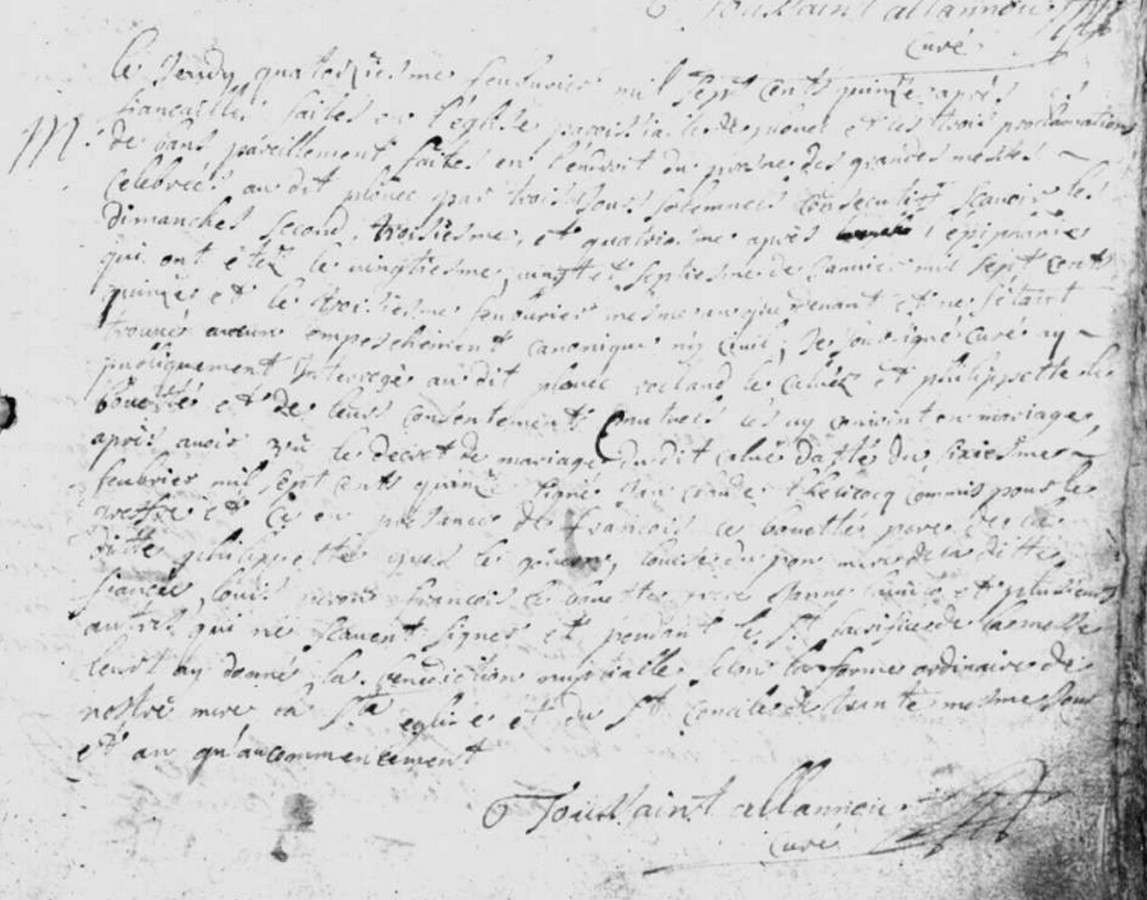 Toussaint allannou
curé
le Jeudy quatorziesme feubvrier mil sept cents quinze apres
fiancailles faites en l'église paroissialle de plouec et les trois proclamations
M: de bans pareillement faites en l'endroit du prosne des grandes messes
celebrées au dit plouec par trois Jours solemnels consecutifs scavoir les
dimanches second, troisiesme, et quatriesme apres l'épiphanie
qui ont étez le vingtiesme, vingt et septiesme de Janvier mil sept cents
quinze et le troisiesme feubvrier mesme an que devant et ne s'étant
trouvé aucun empeschement canonique ny civil, Je soussigné curé ay
publiquement Interrogé au dit plouec rolland le caluez et philippette le
bouetté et de leurs consentements mutuels les ay conioint en mariage,
après avoir vû le decret de mariage du dit calué datté du sixiesme
feubvrier mil sept cents quinze signé commis pour le
greffe et ce en presance de francois le bouetté pere de la
ditte philippette yves le louise du pon mere de la ditte
fiancée, louis francois le bouetté et plusieurs
autres qui ne scavent signer et pendant le St sacrifice de la messe
leurs ay donné la benediction nuptialle selon la forme ordinaire de
nostre mere la Ste eglise et du St concile de trante mesme Jour
et an qu'au commencement
Toussaint allannou
curé